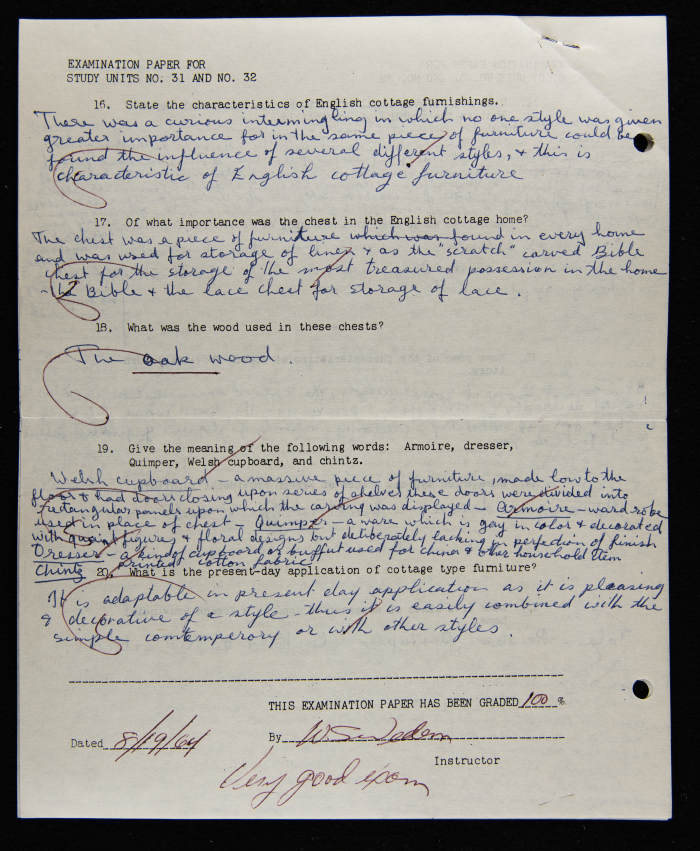 EXAMINATION PAPER FOR
STUDY UNITS NO. 31 AND NO. 32
16. State the characteristics of English cottage furnishings.
There was a curious intermingling in which no one style was given
greater importance for in the same piece of furniture could be
found the influence of several different styles, & this is
characteristic of English cottage furniture
17. Of what importance was the chest in the English cottage home?
The chest was a piece of furniture which was found in every home
and was used for storage of linen & as the "scratch" carved Bible
chest for the storage of the most treasured possession in the home
- the Bible & the lace chest for storage of lace.
18. What was the wood used in these chests?
The oak wood.
19. Give the meaning of the following words: Armoire, dresser,
Quimper, Welsh cupboard, and chintz.
Welsh cupboard - a massive piece of furniture, made low to the
floor & had doors closing upon series of shelves these doors were divided into
rectangular panels upon which the carving was displayed - Armoire - wardrobe
used in place of chest - Quimper - a ware which is gay in color & decorated
with quaint figures & floral designs but deliberately lacking in perfection of finish
Dresser - a kind of cupboard or buffut used for china & other household item
Chintz - printed cotton fabric
20. What is the present-day application of cottage type furniture?
It is adaptable in present day application as it is pleasing
& decorative of a style - thus it is easily combined with the
simple comtemperory or with other styles.
THIS EXAMINATION PAPER HAS BEEN GRADED 100 %
Dated 8/19/64 By
Instructor
Very good exam